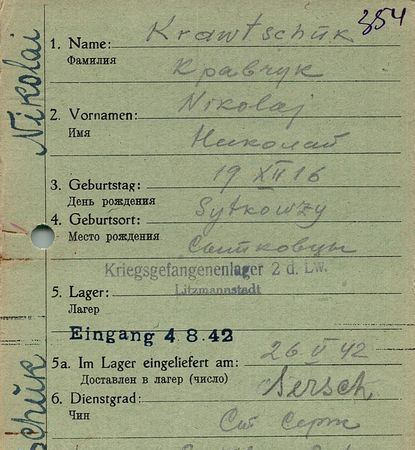 354
Krawtschük
1. Name:
Фамилия
Кравчук
Nikolaj
2. Vornamen:
Имя
Николай
19 XII 16
3. Geburtstag:
День рождения
Sytkowzy
4. Geburtsort:
Место рождения
Сытковцы
Kriegsgefangenenlager 2 d. Lw.
Litzmannstadt
5. Lager:
Лагерь
Eingang 4.8.42
26 V 42
5a. Im Lager eingeliefert am:
Доставлен в лагер (число)
Sersch
6. Dienstgrad:
Чин
Сит Серж
Nikolai
schük